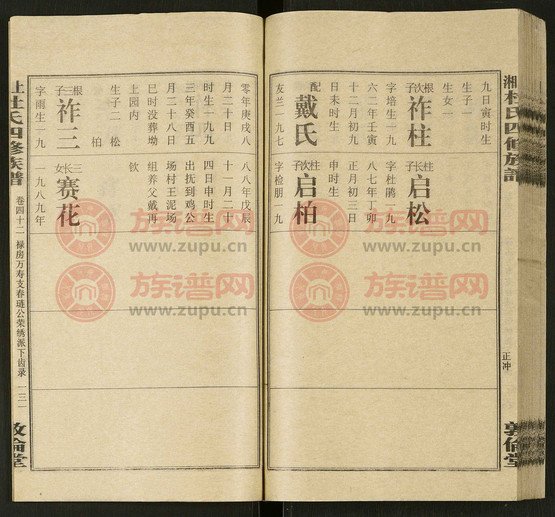 湘杜氏四修族譜
九日寅时生
生子一
生女一
根次子
祚柱
字培生一九
六二年壬寅
十二月初九
日未时生
配
戴氏
友兰一九七
柱长子
启松
字杜鹃一九
八七年丁卯
正月初三日
申时生
柱次子
启柏
字检朋一九
正冲
敦倫堂
零年庚戌八
月二十日
时生一九九
三年癸酉五
月二十八日
已时没葬坳
上园内
生子二 松
柏
钦
根三子
祚三
字雨生一九
八八年戊辰
十一月二十
四日申时生
出抚到鸡公
场村王泥场
组养父戴再
三长女
赛花
一九八九年
杜氏四修族譜
卷四十二
禄房万寿支春琏公荣绣派下齿录
一三一
敦倫堂
族谱网
www.zupu.cn
族谱网
www.zupu.cn
族谱网
www.zupu.cn
族谱网
www.zupu.cn